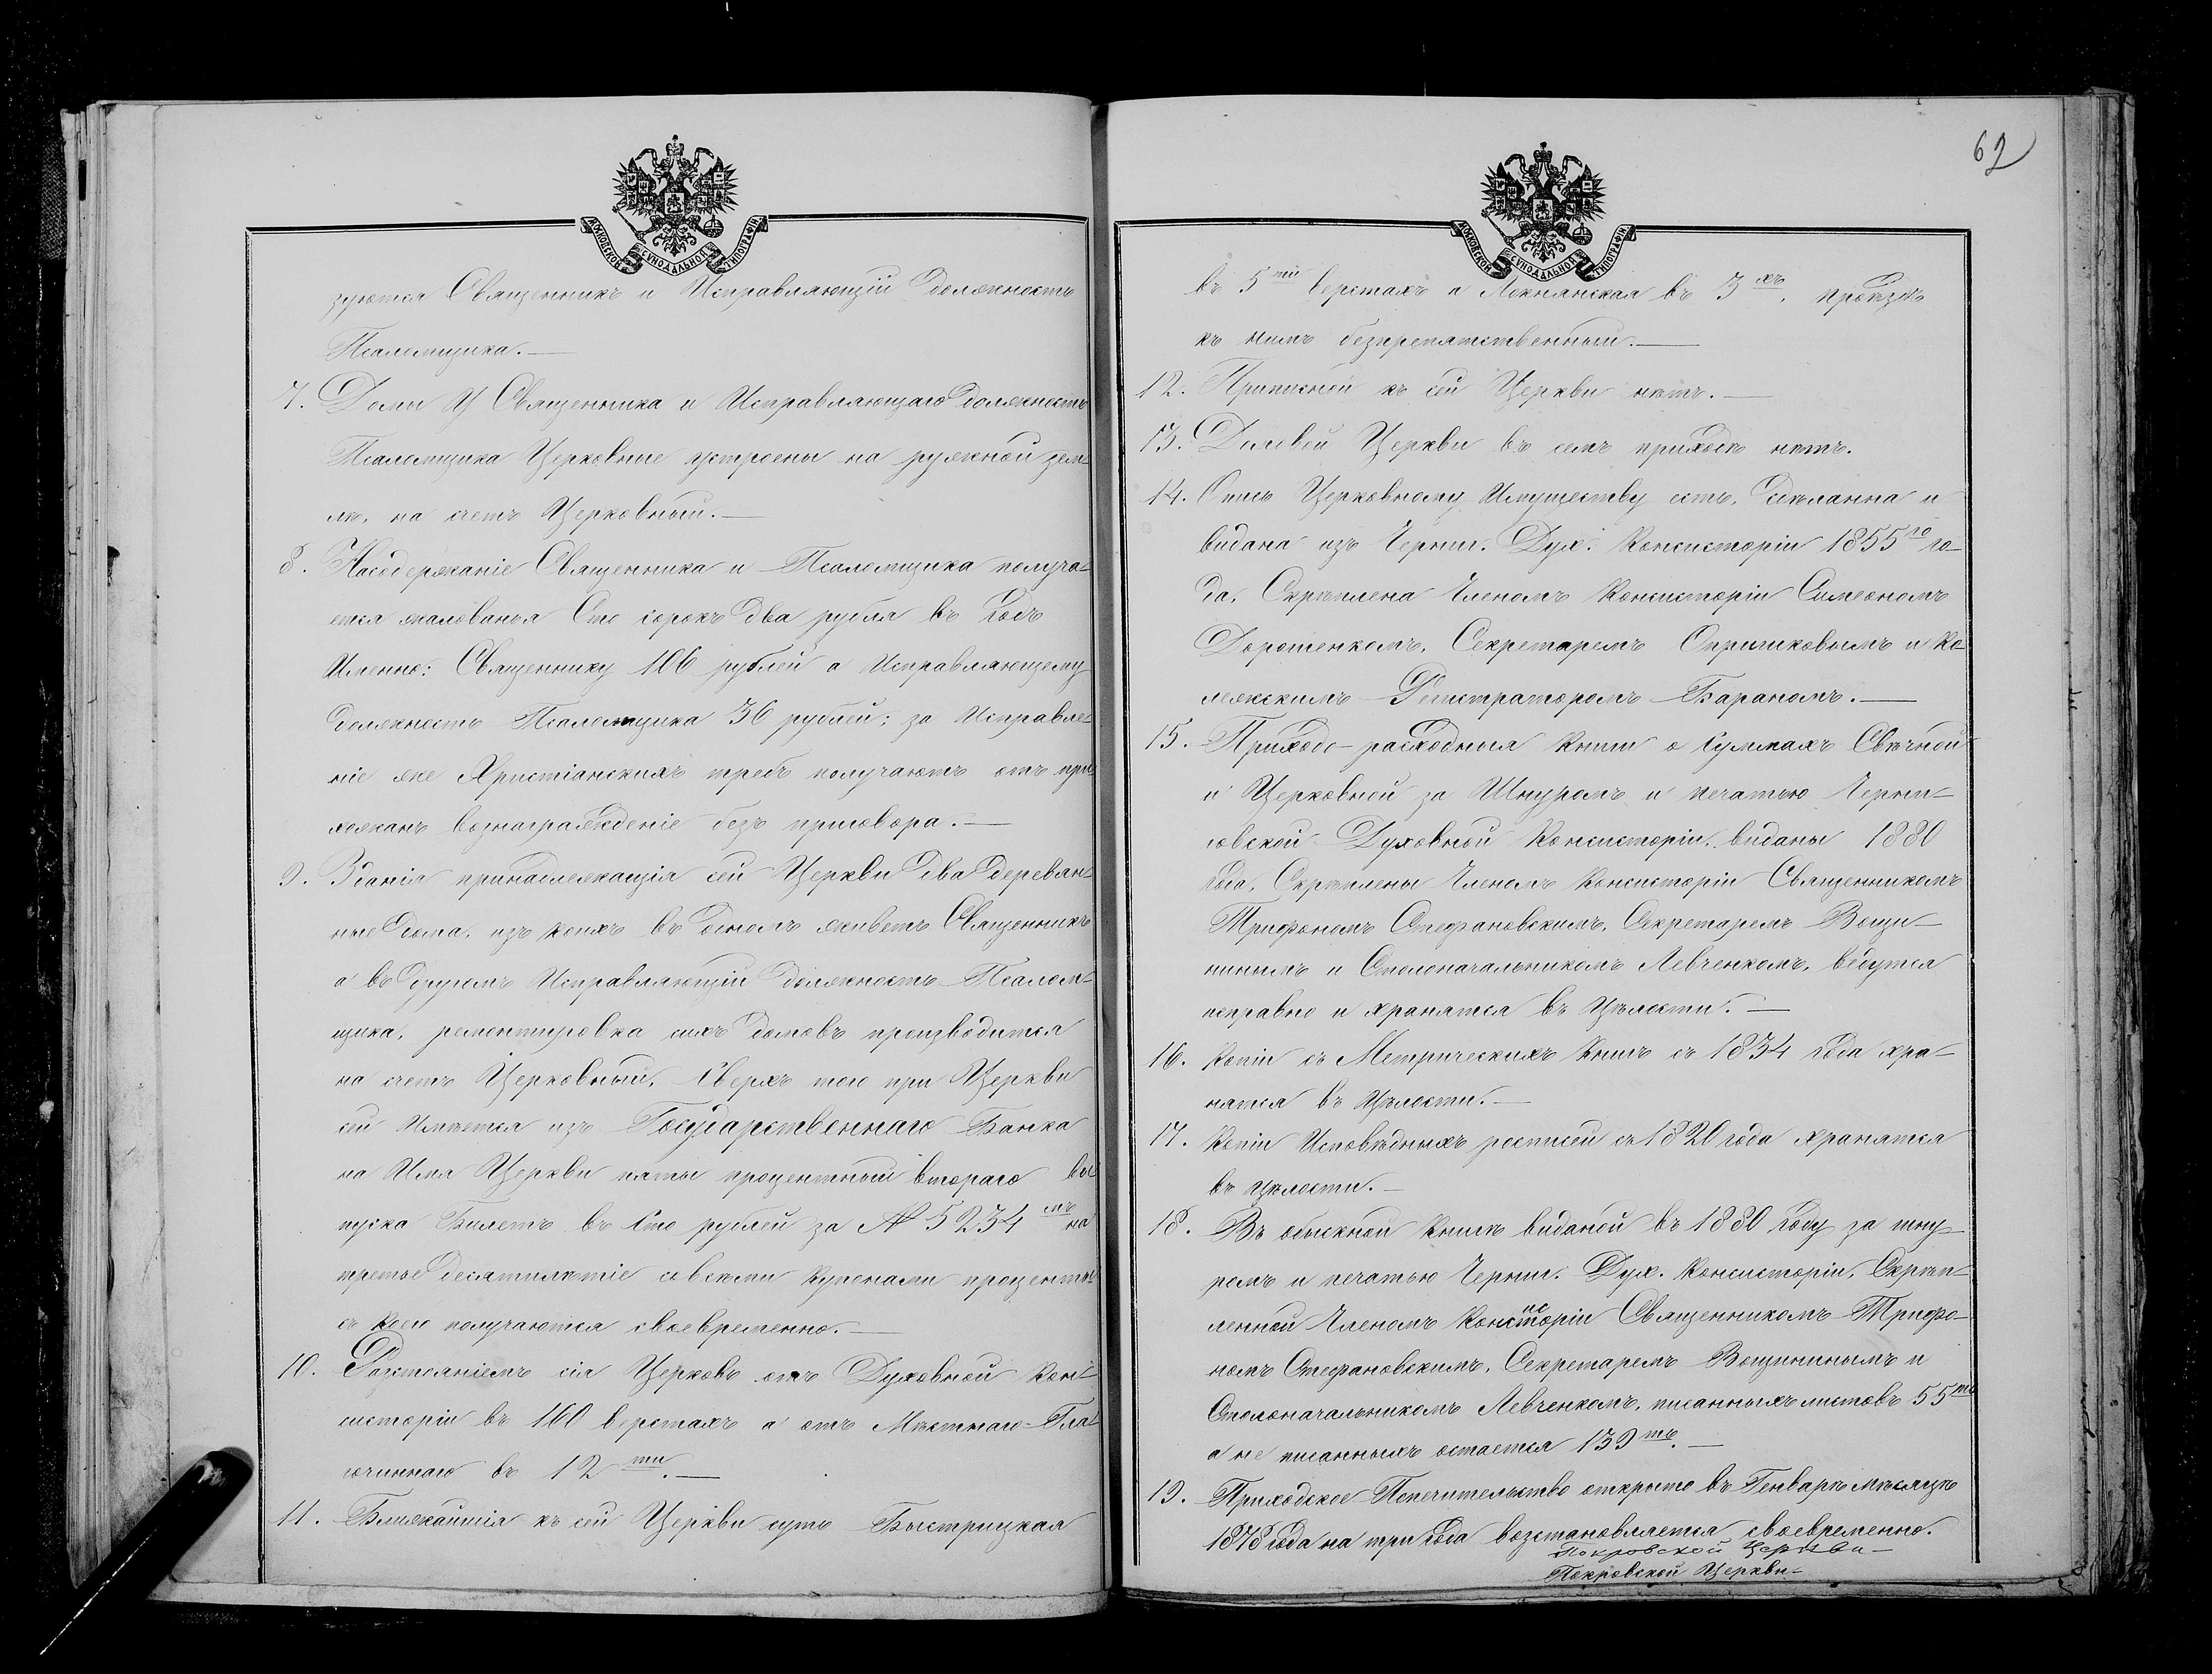 МОСКОВСКОЙ СѴНОДАЛЬНОЙ ТИПОГРАФІИ
зуются Священникъ и Исправляющій должность
Псаломщика.—
7. Домы У Священника и Исправляющаго должность
Псаломщика Церковные устроены на ружной зем-
лѣ, на счетъ Церковный.—
8. Насодержаніе Священника и Псаломщика получа-
ется жалованья Сто сорокъ два рубля въ годъ
Именно: Священнику 106 рублей а Исправляющему
должность Псаломщика 36 рублей; за Исправле-
ніе же Христіанскихъ требъ получаютъ отъ при-
хожанъ вознагражденіе безъ приговора.—
9. Зданія принадлежащія сей Церкви два деревян-
ные дома, изъ коихъ въ одномъ живетъ Священникъ
а въ другомъ Исправляющій должность Псалом-
щика, ремонтировка сихъ домовъ производится
на счетъ Церковный, Сверхъ того при Церкви
сей Имѣется изъ Государственнаго Банка
на Имя Церкви пяты процентный втораго вы
пуска Билетъ въ Сто рублей за № 5234мъ на
третье десятилѣтіе совсѣми купонами проценты
съ коего получаются своевременно.—
10. Разстояніемъ сія Церковь отъ Духовной Кон-
систоріи въ 160 верстахъ а отъ Мѣстнаго Бла-
гочиннаго въ 12ти.—
11. Ближайшія къ сей Церкви суть Быстрицкая
62
МОСКОВСКОЙ СѴНОДАЛЬНОЙ ТИПОГРАФІИ
въ 5ти верстахъ а Локнянская въ 3хъ, проѣздъ
къ нимъ безпрепятственный.—
12. Приписной къ сей Церкви нѣтъ.—
13. Домовой Церкви въ семъ приходѣ нѣтъ.
14. Опись Церковному Имуществу есть, сдѣланна и
видана изъ Черниг. Дух. Консисторіи 1855го го-
да, Скрѣплена Членомъ Консисторіи Симеономъ
Дорошенкомъ, Секретаремъ Опришковымъ и Ко-
лежскимъ Регистраторомъ Бараномъ.—
15. Приходо-расходныя Книги о суммахъ Свѣчной
и Церковной за Шнуромъ и печатью Черни-
говской Духовной Консисторіи, виданы 1880
года, Скрѣплены Членомъ Консисторіи Священникомъ
Трифономъ Стефановскимъ, Секретаремъ Вощи-
нинымъ и Столоначальникомъ Левченкомъ, ведутся
исправно и хранятся въ Цѣлости.—
16. Копіи съ Метрическихъ Книгъ съ 1834 года хра-
нятся въ Цѣлости.—
17. Копіи Исповѣдныхъ росписей съ 1820 года хранятся
въ цѣлости.—
18. Въ обыскной Книгѣ виданой въ 1880 году за шну-
ромъ и печатью Черниг. Дух. Консисторіи, Скрѣп-
ленной Членомъ Консисторіи Священникомъ Трифо-
номъ Стефановскимъ, Секретаремъ Вощининымъ и
Столоначальникомъ Левченкомъ, писанныхъ листовъ 55ть
а не писанныхъ остается 139ть.—
19. Приходское Попечительство открыто въ Генварѣ мѣсяцѣ
1878 года на три года возстановляется своевременно.
Покровской Церкви—
Покровской Церкви—